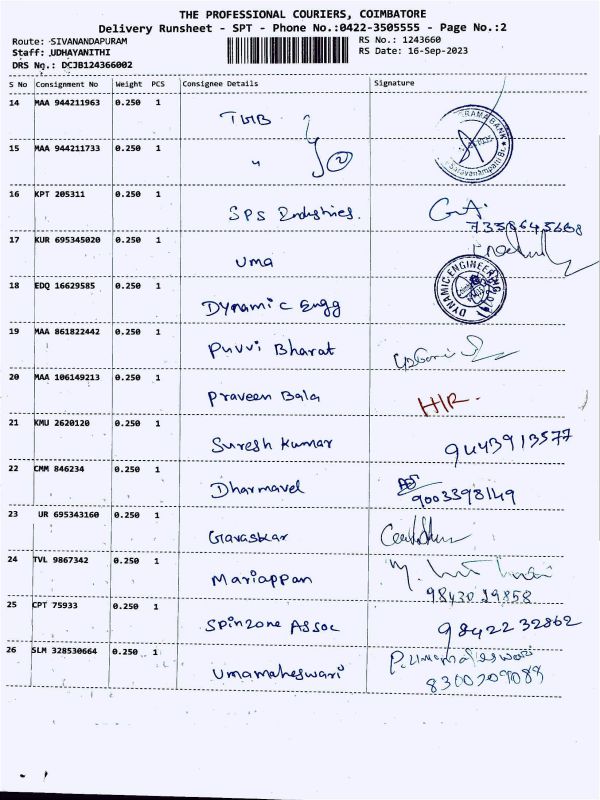 THE PROFESSIONAL COURIERS, COIMBATORE
Delivery Runsheet - SPT - Phone No.:0422-3505555 - Page No.:2
Route: SIVANANDAPURAM
RS No.: 1243660
Staff: UDHAYANITHI
RS Date: 16-Sep-2023
DRS No.: DCJB124366002
S No Consignment No Weight PCS Consignee Details Signature
14 MAA 944211963 0.250 1
TMB
15 MAA 944211733 0.250 1
" 2
16 KPT 205311 0.250 1
SPS Industries.
17 KUR 695345020 0.250 1
uma
18 EDQ 16629585 0.250 1 DYNAMIC ENGINEERING
Dynamic Engg
19 MAA 861822442 0.250 1
Puvvi Bharat
20 MAA 106149213 0.250 1
Praveen Bala H/R.
21 KMU 2620120 0.250 1
Suresh Kumar 9443913577
22 CMM 846234 0.250 1
Dharmavel 9003398149
23 UR 695343160 0.250 1
Gavaskar
24 TVL 9867342 0.250 1
Mariappan 98430 19858
25 CPT 75933 0.250 1
Spinzone Assoc 9842232862
26 SLM 328530664 0.250 1
Umamaheswari P. Umamaheswari
8300209088